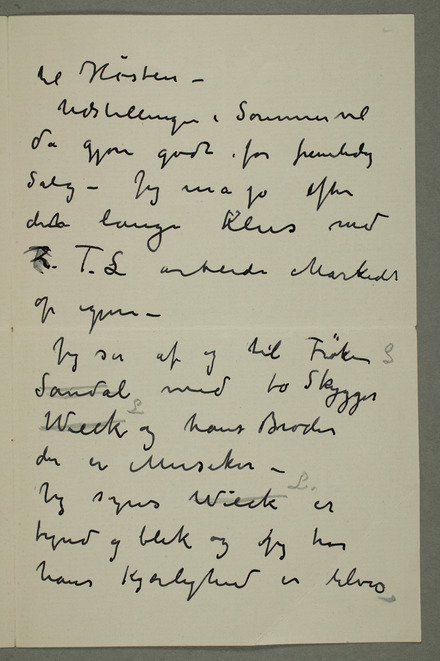 til Høsten –
Udstillinger i Sommer vil
da gjøre godt for fremtidig
Salg – Jeg må jo efter
dette lange Klus med
R. T. L arbeide Markedet
op igjen –
Jeg ser af og til Frøken S
Sandal med to Skygger
Wieck L og hans Broder
der er Musiker –
Jeg synes Wieck L. er
tynd og blek og
hans Kjærlighed er